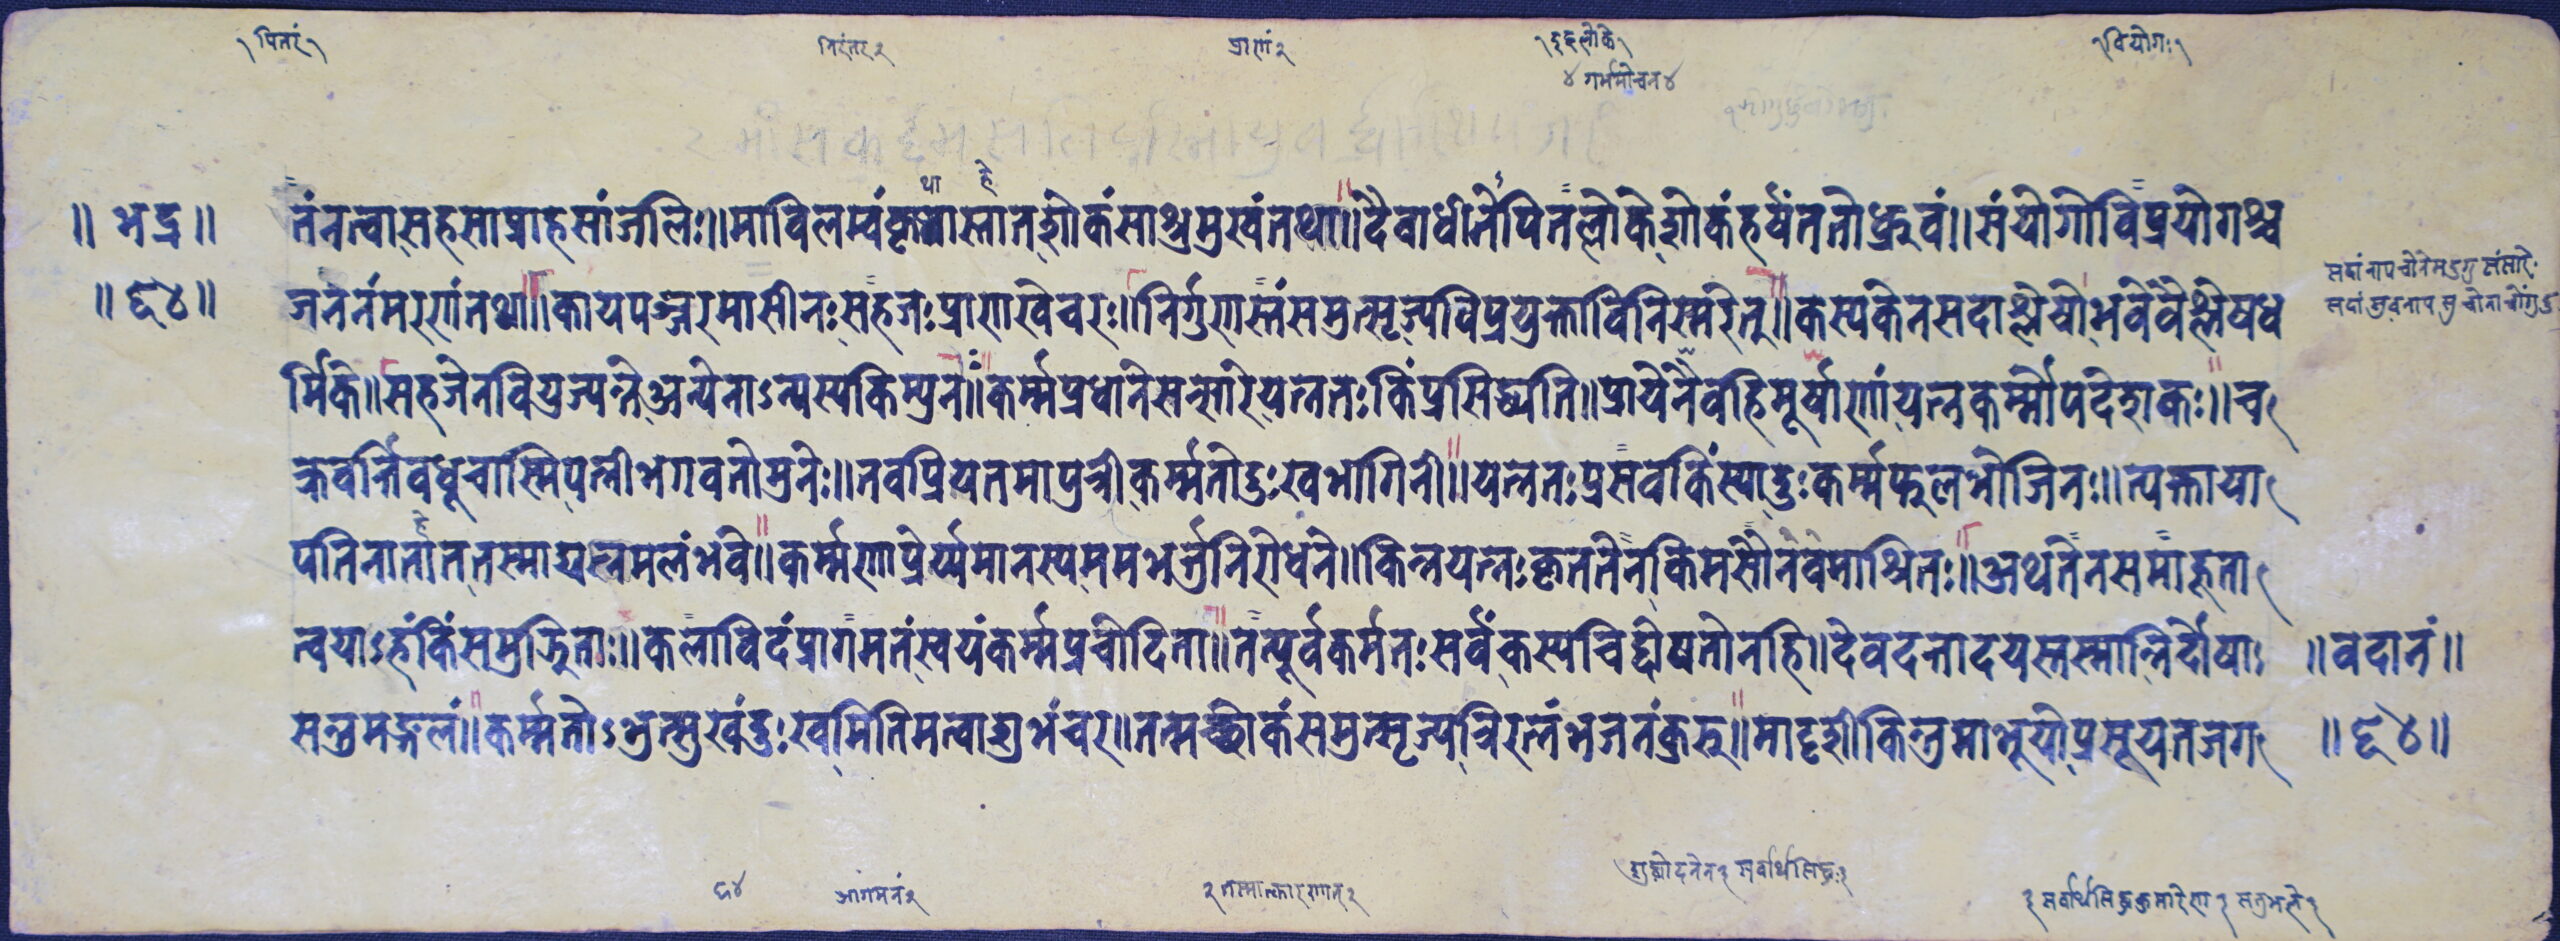 १ पितरं १
निरंतर २
प्राणं २
१ इहलोके १
४ गर्भमोचन ४
१ वियोगः १
था हे
॥ भद्र ॥ तंनत्वासहसाप्राहसांजलिः॥माविलम्वंकृथास्तातशोकंसाश्रुमुखंतथा॥दैवाधीनेपितल्लोकेशोकंहर्षंततोध्रुवं॥संयोगोविप्रयोगश्च
॥ ६४ ॥ जननंमरणंतथा॥कायपञ्जरमासीनःसहजःप्राणखेचरः॥निर्गुणस्तंसमुत्सृज्यविप्रयुक्ताविनिस्मरेत्॥कस्यकेनसदाश्लेषोभवेवैश्लेषध
र्मिके॥सहजेनवियुज्यन्तेअन्येनाऽन्यस्यकिम्पुनः॥कर्म्मप्रधानेसन्सारेयत्नतःकिंप्रसिद्ध्यति॥प्रायेनैवहिमूर्षाणांयत्नकर्म्मोपदेशकः॥च
क्रवर्त्तिवधूचास्मिपत्नीभगवतोमुनेः॥तवप्रियतमापुत्रीकर्म्मतोदुःखभागिनी॥यत्नतःप्रसवेकिंस्याद्दुःकर्म्मफलभोजिनः॥त्यक्ताया
हे
पतिनातात तस्माद्यत्नमलंभवे॥कर्म्मणाप्रेर्य्यमानस्यममभर्त्तुर्निरोधने॥किन्नयत्नःकृतस्तेनकिमसौनवमाश्रितः॥अथतेनसमाहूता
त्वयाऽहंकिंसमुझिताः॥केलाविदंप्रागमतंस्वयंकर्म्मप्रचोदिता॥तत्पूर्वकर्मतःसर्वंकस्यचिद्दोषतोनहि॥देवदत्तादयस्तस्मान्निर्दोषाः ॥ वदानं ॥
सन्तुमङ्गलं॥कर्म्मतोऽभुत्सुखंदुःखमितिमत्वाशुभंचर॥तन्मच्छोकंसमुत्सृज्यत्रिरत्नंभजनंकुरु॥मादृशीकिन्तुमाभूयोप्रसूयतजग ॥ ६४ ॥
६४
आगमनं २
२ तस्मात्कारणात् २
शुद्धोदनेन १ सर्वार्थसिद्धः १